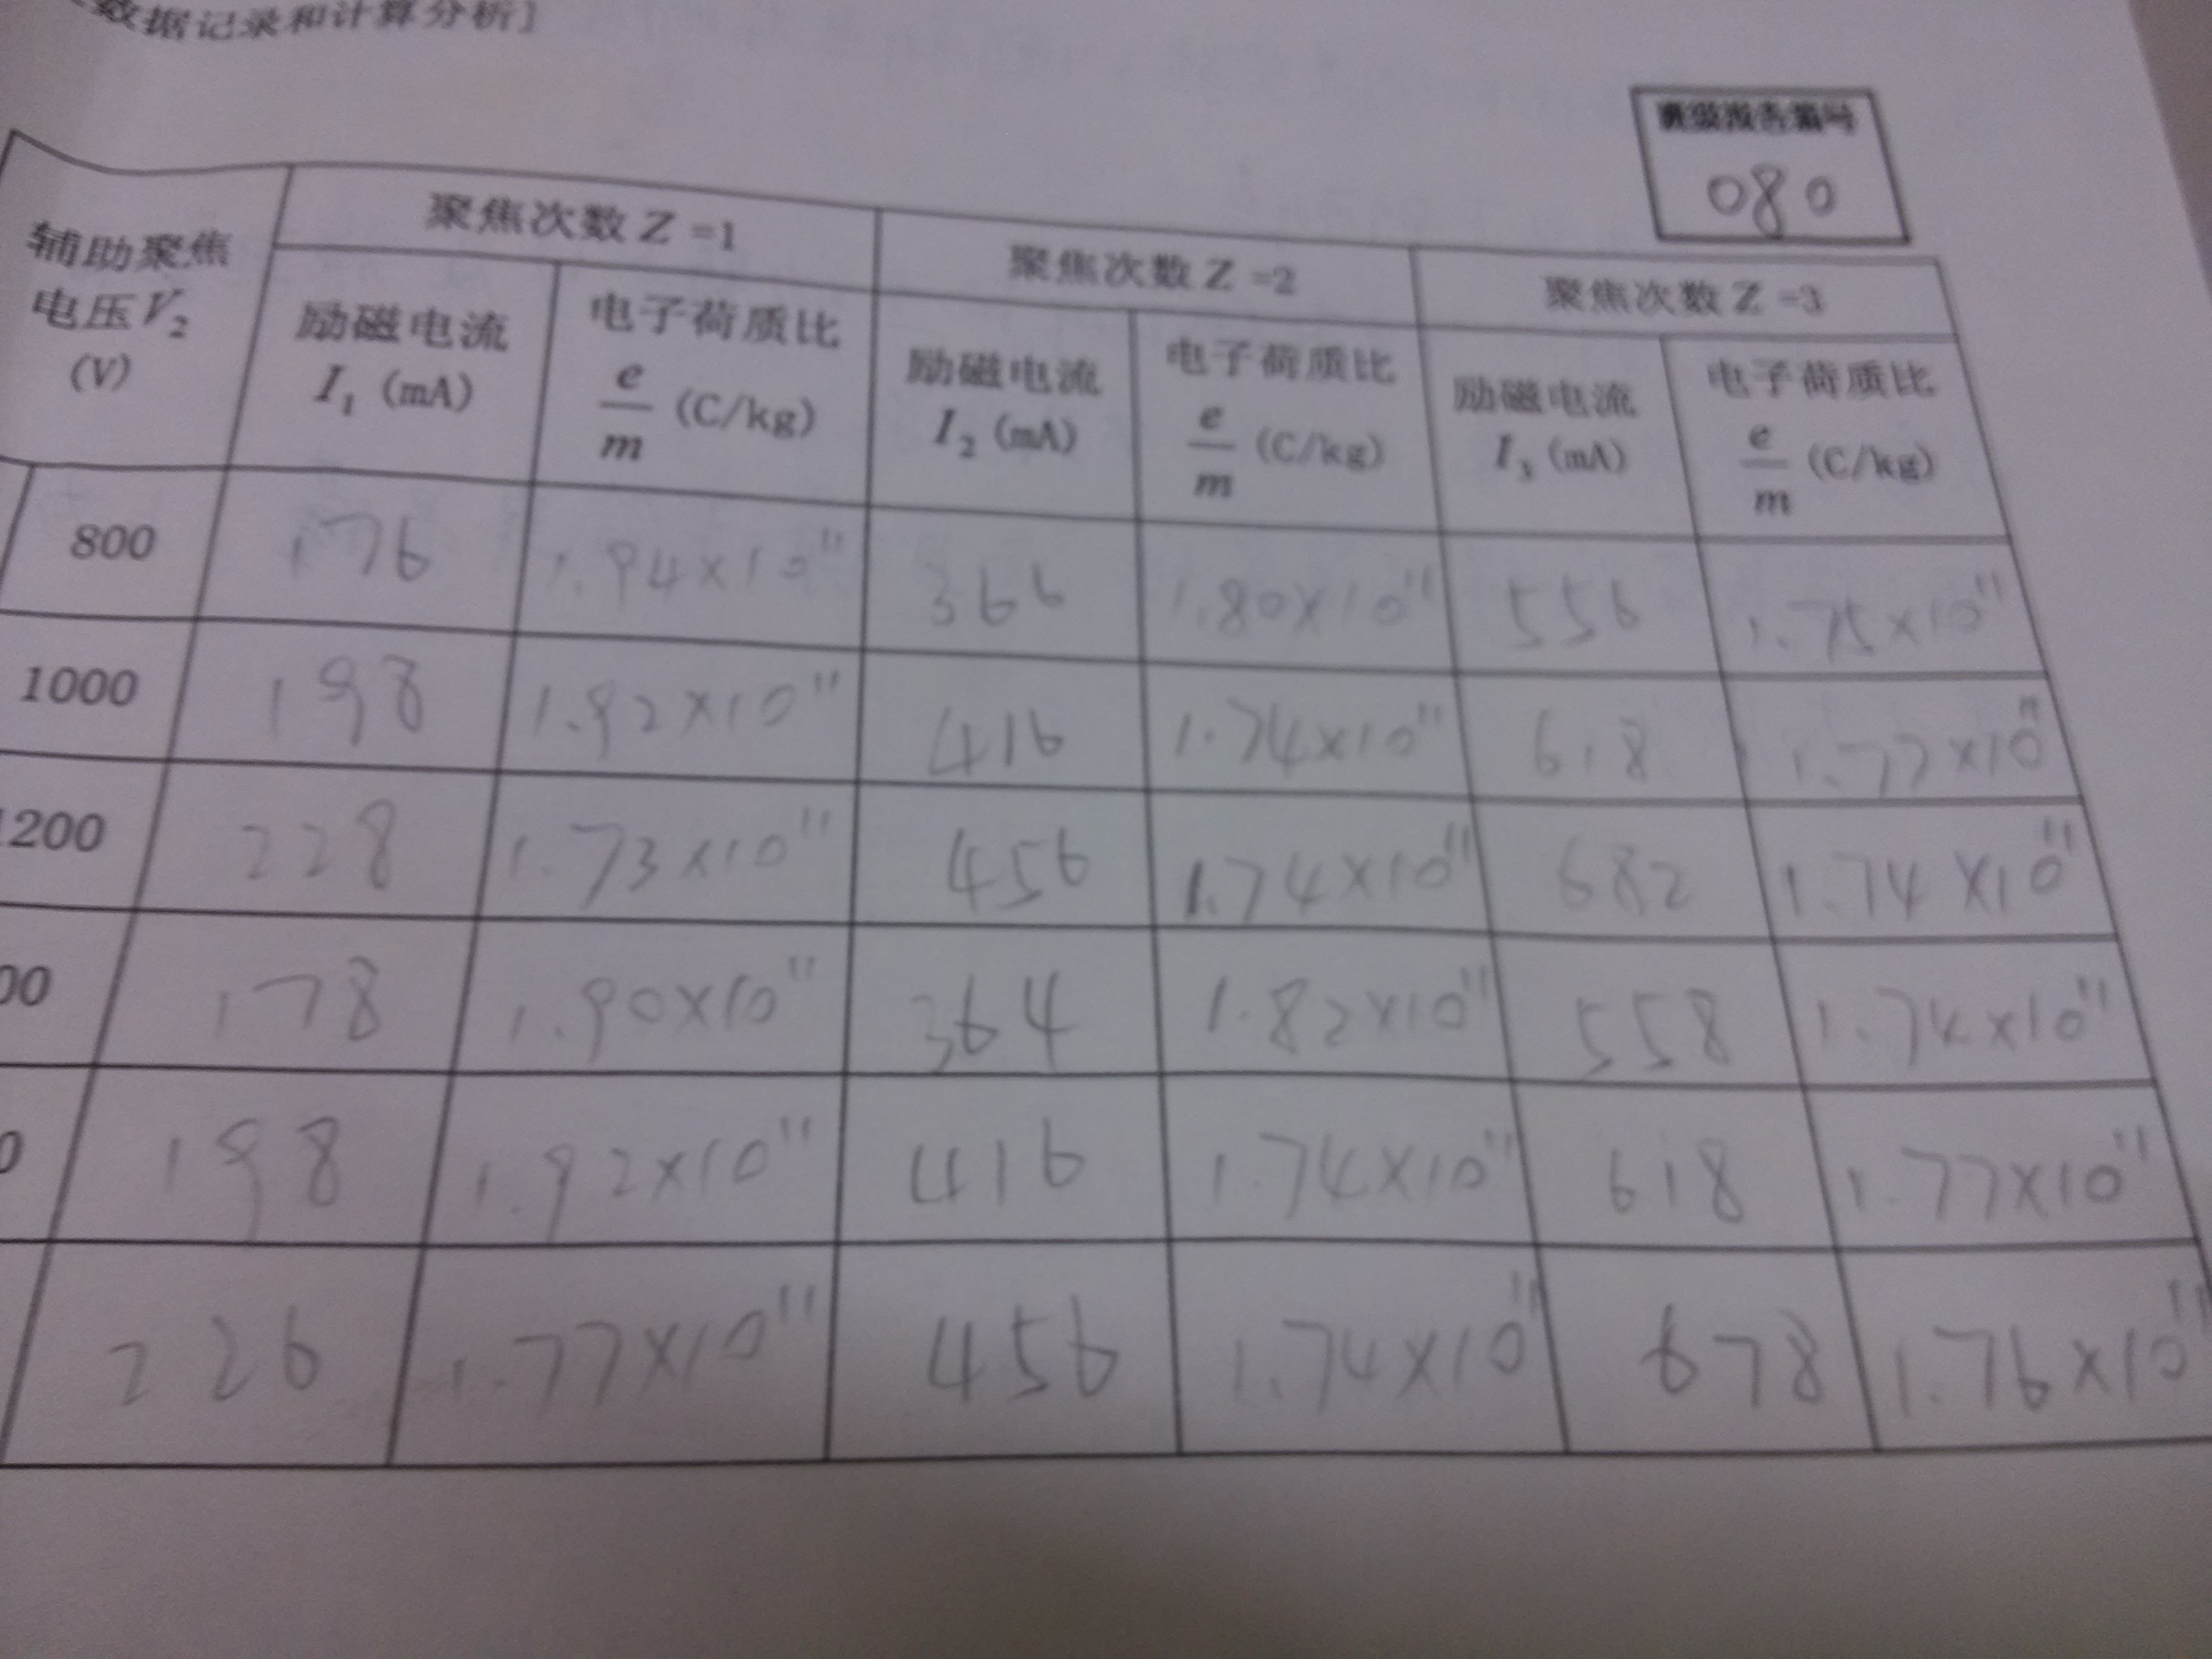 数据记录和计算分析]
080
辅助聚焦
电压V₂
(V)
聚焦次数 Z =1
聚焦次数 Z =2
聚焦次数 Z =3
励磁电流
I₁ (mA)
电子荷质比
e/m (C/kg)
励磁电流
I₂ (mA)
电子荷质比
e/m (C/kg)
励磁电流
I₃ (mA)
电子荷质比
e/m (C/kg)
800 176 1.94×10¹¹ 366 1.80×10¹¹ 556 1.75×10¹¹
1000 198 1.92×10¹¹ 416 1.74×10¹¹ 618 1.77×10¹¹
1200 228 1.73×10¹¹ 456 1.74×10¹¹ 682 1.74×10¹¹
00 178 1.90×10¹¹ 364 1.82×10¹¹ 558 1.74×10¹¹
0 198 1.92×10¹¹ 416 1.74×10¹¹ 618 1.77×10¹¹
226 1.77×10¹¹ 456 1.74×10¹¹ 678 1.76×10¹¹